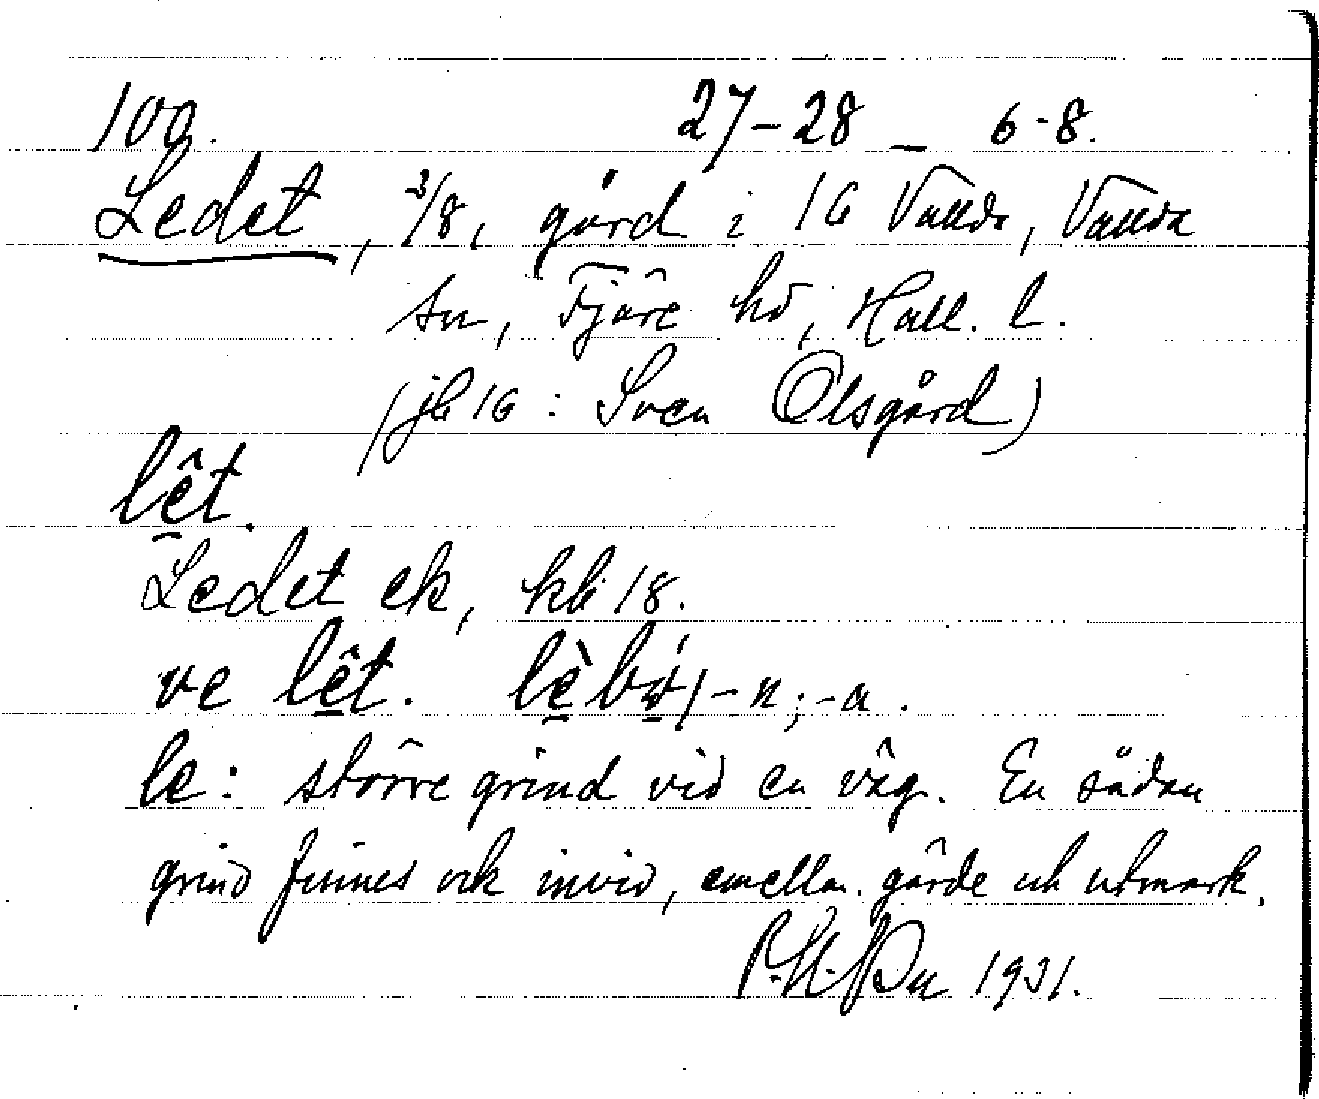 100.    27–28 – 6-8.
Ledet, 3/8, gård i 16 Vallda, Vallda
sn, Fjäre hd, Hall. l.
(jb 16: Sven Olsgård)
lêt.
Ledet ek, kb 18.
ve lêt. lèbó, -n; -a.
le: större grind vid en väg. En sådan
grind finnes ock invid, emellan gärde och utmark.
1931.